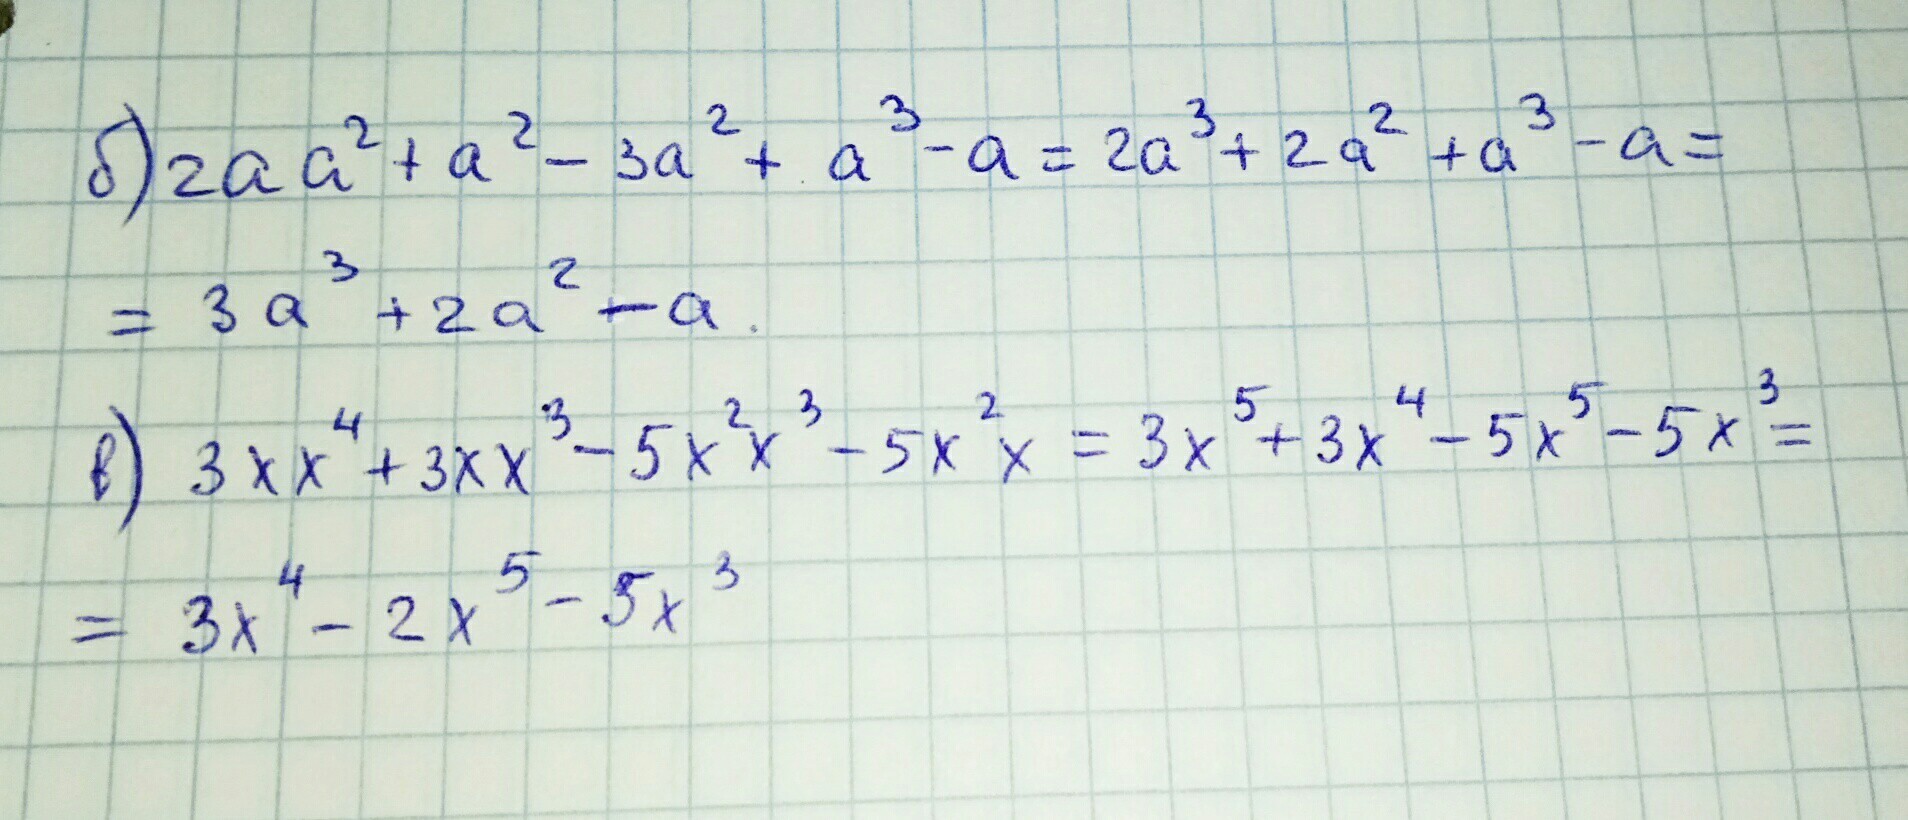 б) 2aa² + a² - 3a² + a³ - a = 2a³ + 2a² + a³ - a =
= 3a³ + 2a² - a.
в) 3xx⁴ + 3xx³ - 5x²x³ - 5x²x = 3x⁵ + 3x⁴ - 5x⁵ - 5x³ =
= 3x⁴ - 2x⁵ - 5x³